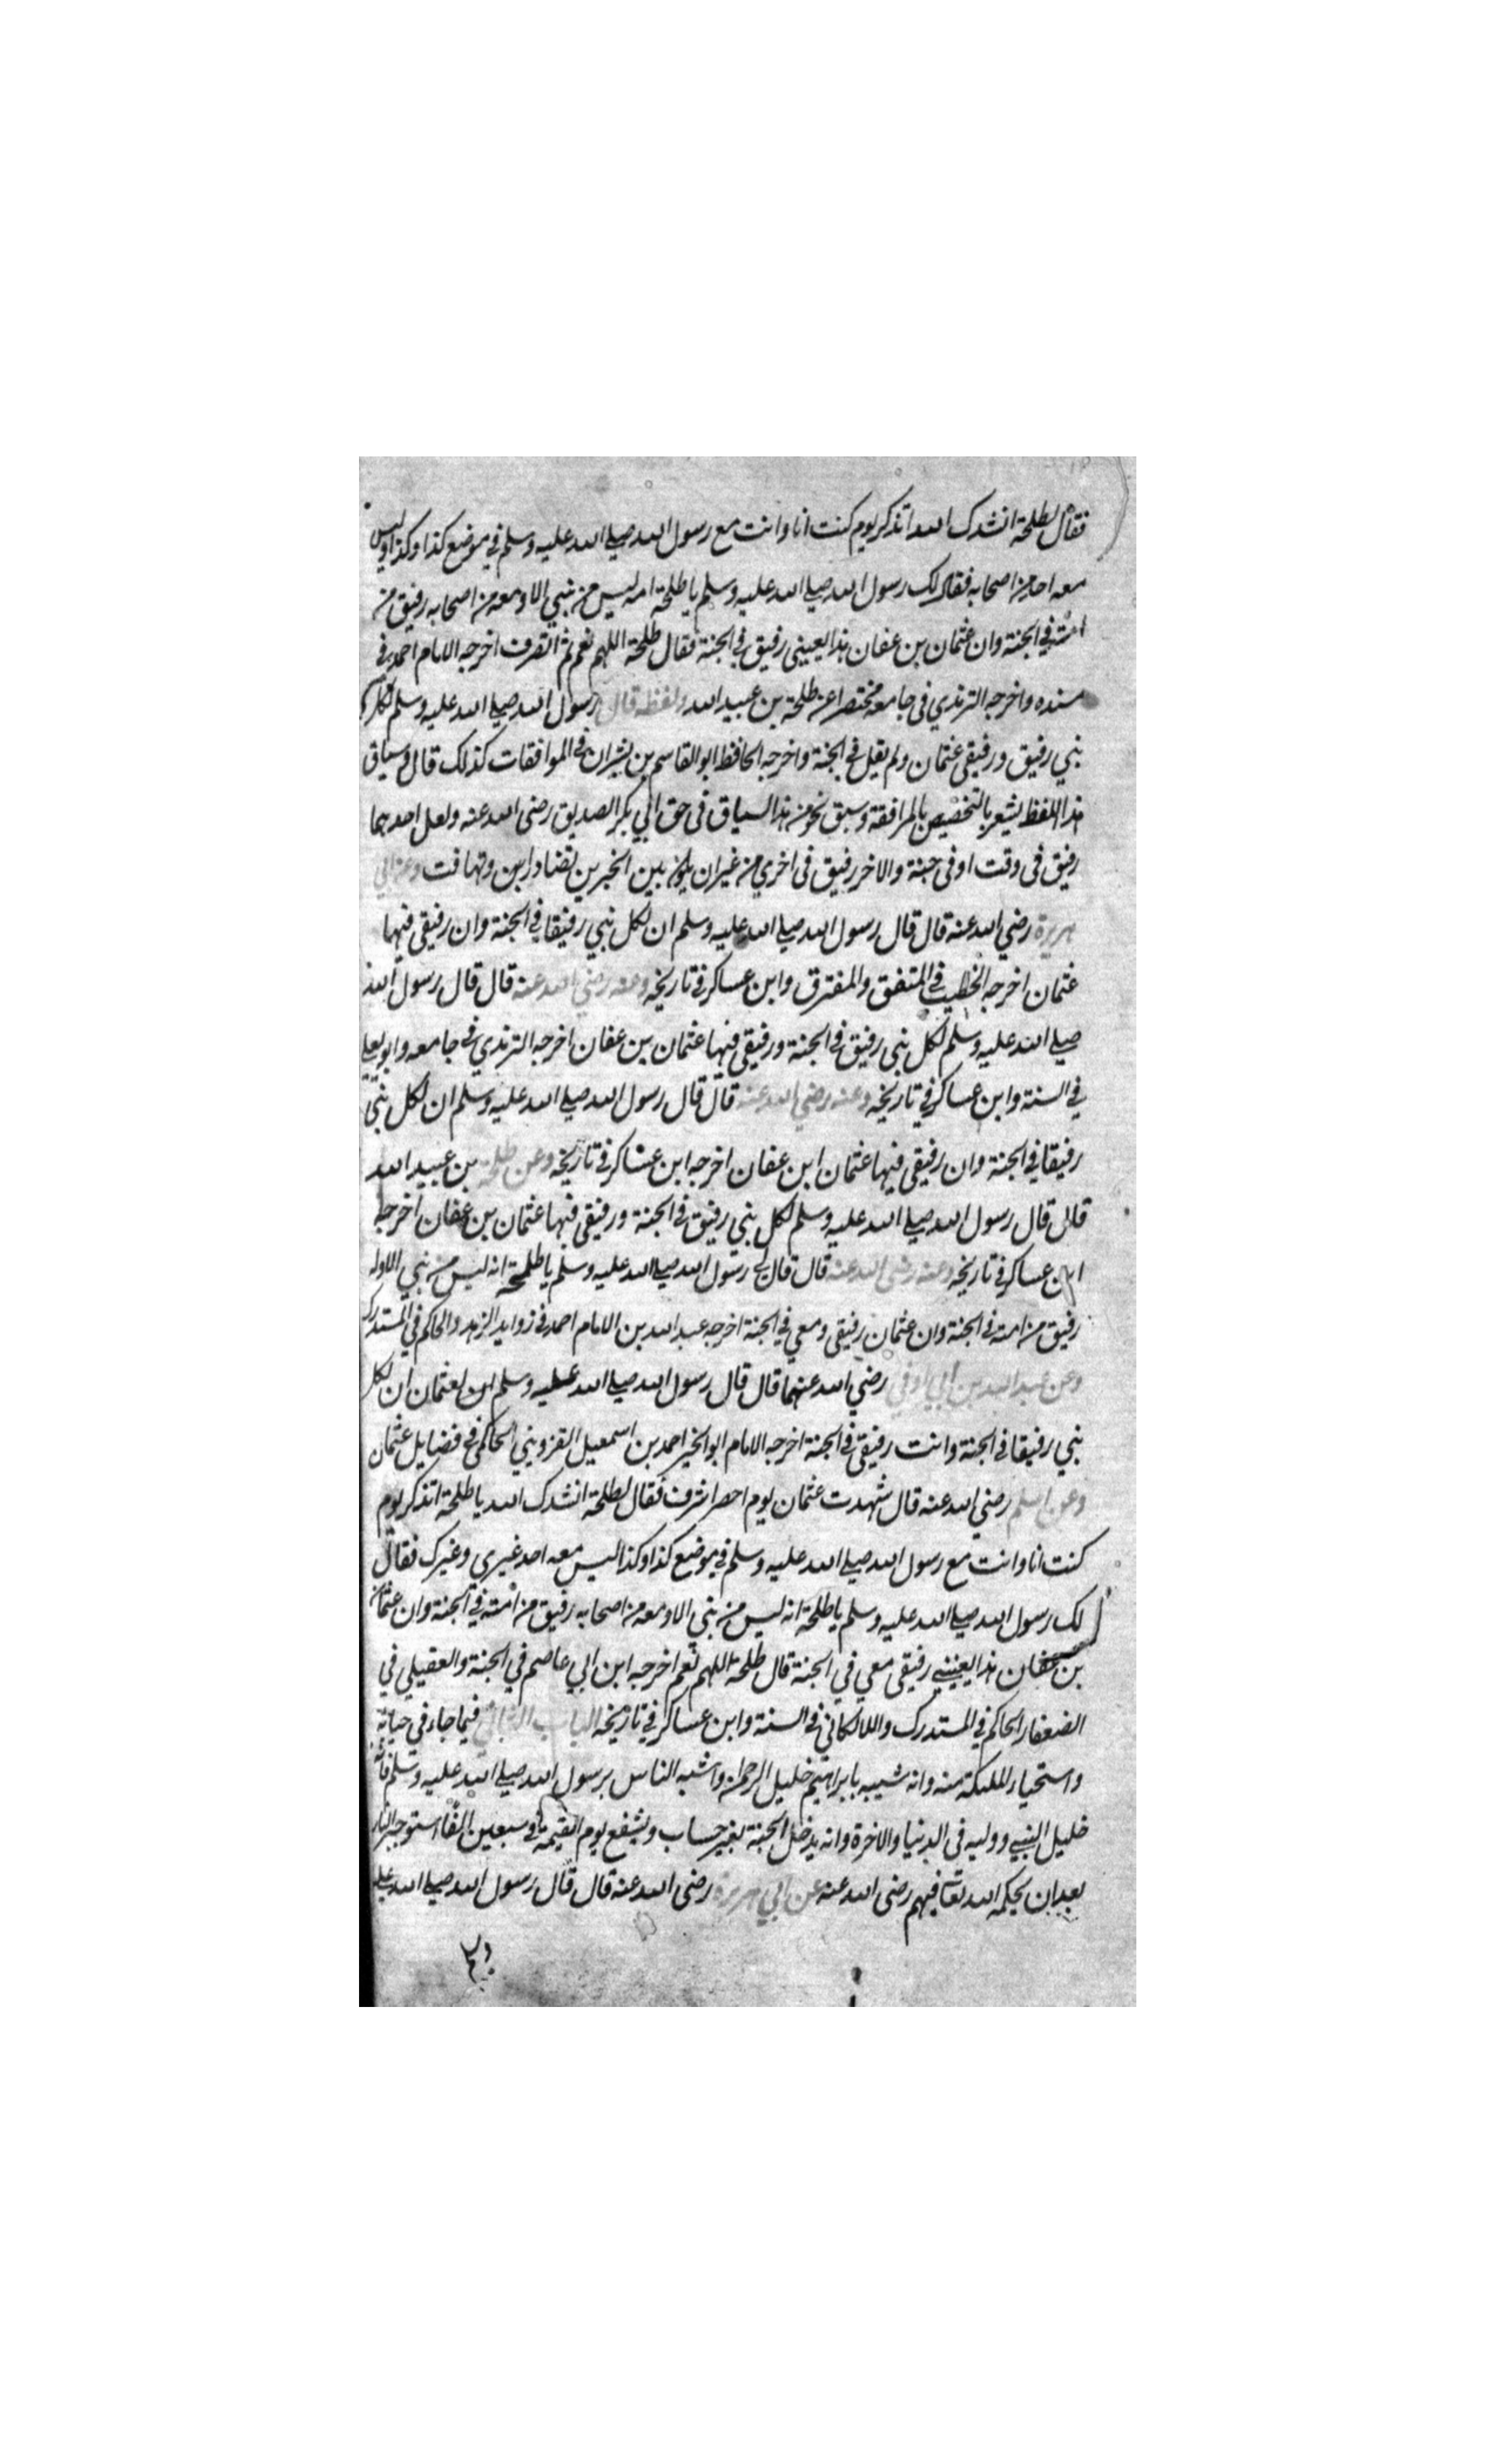 فقال لطلحة انشدك الله اتذكر يوم كنت انا وانت مع رسول الله صلى الله عليه وسلم في موضع كذا وكذا وليس
معه احد من اصحابه فقال لك رسول الله صلى الله عليه وسلم يا طلحة انه ليس من نبي الا ومعه من اصحابه رفيق من
امته في الجنة وان عثمان بن عفان هذا يعينى رفيق في الجنة فقال طلحة اللهم نعم ثم انصرف اخرجه الامام احمد في
مسنده واخرجه الترمذي في جامعه مختصرا عن طلحة بن عبيد الله ولفظه قال رسول الله صلى الله عليه وسلم لكل
نبي رفيق ورفيقى عثمان ولم يقل في الجنة واخرجه الحافظ ابو القاسم بن بشران في الموافقات كذلك قال وسياق
هذا اللفظ يشعر بالتخصيص بالمرافقة وسبق نحو من هذا السياق في حق ابي بكر الصديق رضى الله عنه ولعل احدهما
رفيق في وقت او في جنة والاخر رفيق في اخري من غير ان يكون بين الخبرين تضادا بين وتهافت وعن ابي
هريرة رضي الله عنه قال قال رسول الله صلى الله عليه وسلم ان لكل نبي رفيقا في الجنة وان رفيقى فيها
عثمان اخرجه الخطيب في المتفق والمفترق وابن عساكر في تاريخه وعنه رضي الله عنه قال قال رسول الله
صلى الله عليه وسلم لكل نبي رفيق في الجنة ورفيقى فيها عثمان بن عفان اخرجه الترمذي في جامعه وابو يعلى
في السنة وابن عساكر في تاريخه وعنه رضي الله عنه قال قال رسول الله صلى الله عليه وسلم ان لكل نبي
رفيقا في الجنة وان رفيقى فيها عثمان ابن عفان اخرجه ابن عساكر في تاريخه وعن طلحة بن عبيد الله
قال قال رسول الله صلى الله عليه وسلم لكل نبي رفيق في الجنة ورفيقى فيها عثمان بن عفان اخرجه
ابن عساكر في تاريخه وعنه رضى الله عنه قال قال لي رسول الله صلى الله عليه وسلم يا طلحة انه ليس من نبي الا وله
رفيق من امته في الجنة وان عثمان رفيقى ومعي في الجنة اخرجه عبد الله بن الامام احمد في زوايد الزهد والحاكم في المستدرك
وعن عبد الله بن ابي اوفى رضي الله عنهما قال قال رسول الله صلى الله عليه وسلم لعثمان ان لكل
نبي رفيقا في الجنة وانت رفيقى في الجنة اخرجه الامام ابو الخير احمد بن اسمعيل القزويني الحاكمى في فضايل عثمان
وعن اسلم رضي الله عنه قال شهدت عثمان يوم احصر اشرف فقال لطلحة انشدك الله يا طلحة اتذكر يوم
كنت انا وانت مع رسول الله صلى الله عليه وسلم في موضع كذا وكذا ليس معه احد غيري وغيرك فقال
لك رسول الله صلى الله عليه وسلم يا طلحة انه ليس من نبي الا ومعه من اصحابه رفيق من امته في الجنة وان عثمان
بن عفان هذا يعينى رفيقى معي في الجنة قال طلحة اللهم نعم اخرجه ابن ابي عاصم في الجنة والعقيلي في
الضعفا والحاكم في المستدرك واللالكائي في السنة وابن عساكر في تاريخه الباب الثاني فيما جاء في حيائه
واستحياء الملئكة منه وانه شبيه بابراهيم خليل الرحمن واشبه الناس برسول الله صلى الله عليه وسلم وانه
خليل النبي ووليه في الدنيا والاخرة وانه يدخل الجنة بغير حساب ويشفع يوم القيمة في سبعين الفا استوجبوا النار
بعد ان يحكمه الله تعالى فيهم رضى الله عنه عن ابي هريرة رضى الله عنه قال قال رسول الله صلى الله عليه
وسلم